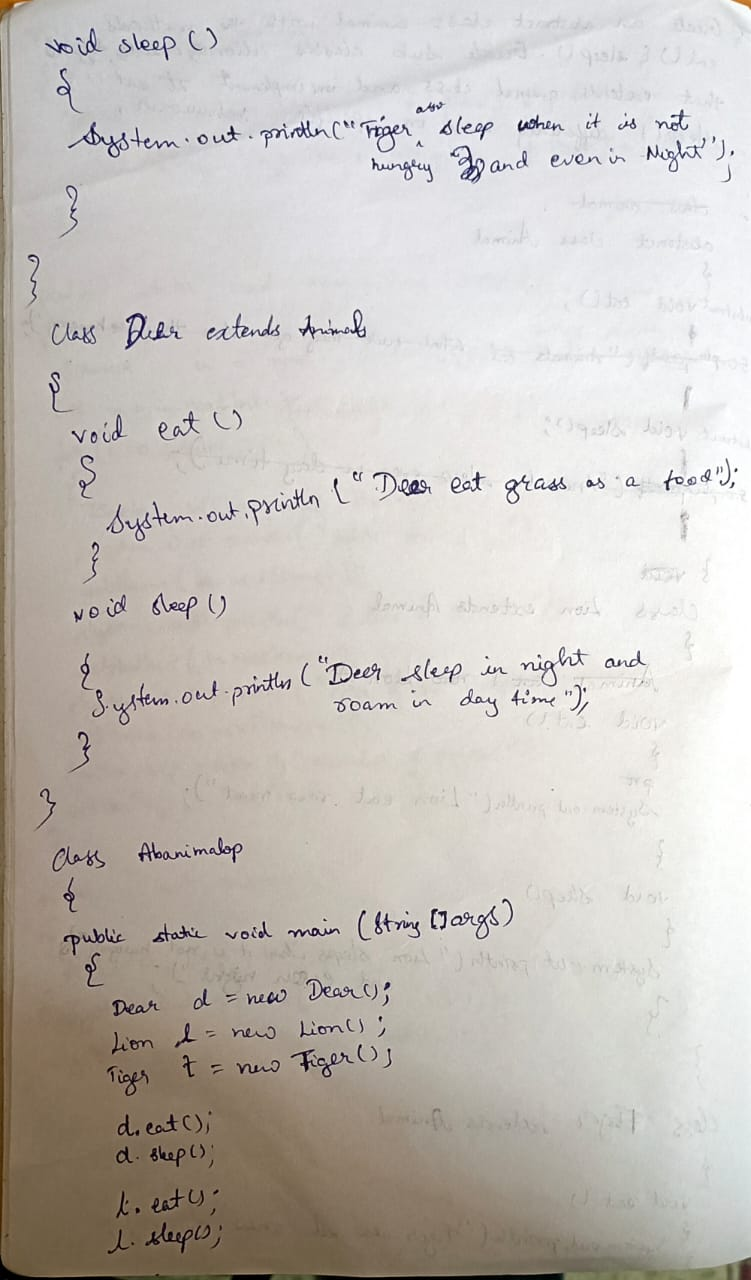 void sleep ()
{
System.out.println("Tiger also sleep when it is not
hungry and even in Night");
}
}
Class Deer extends Animals
{
void eat ()
{
System.out.println ("Deer eat grass as a food");
}
void sleep ()
{
System.out.println ("Deer sleep in night and
roam in day time");
}
}
Class Abanimalop
{
public static void main (String []args)
{
Dear d = new Dear();
Lion l = new Lion();
Tiger t = new Tiger();
d.eat();
d.sleep();
l.eat();
l.sleep();